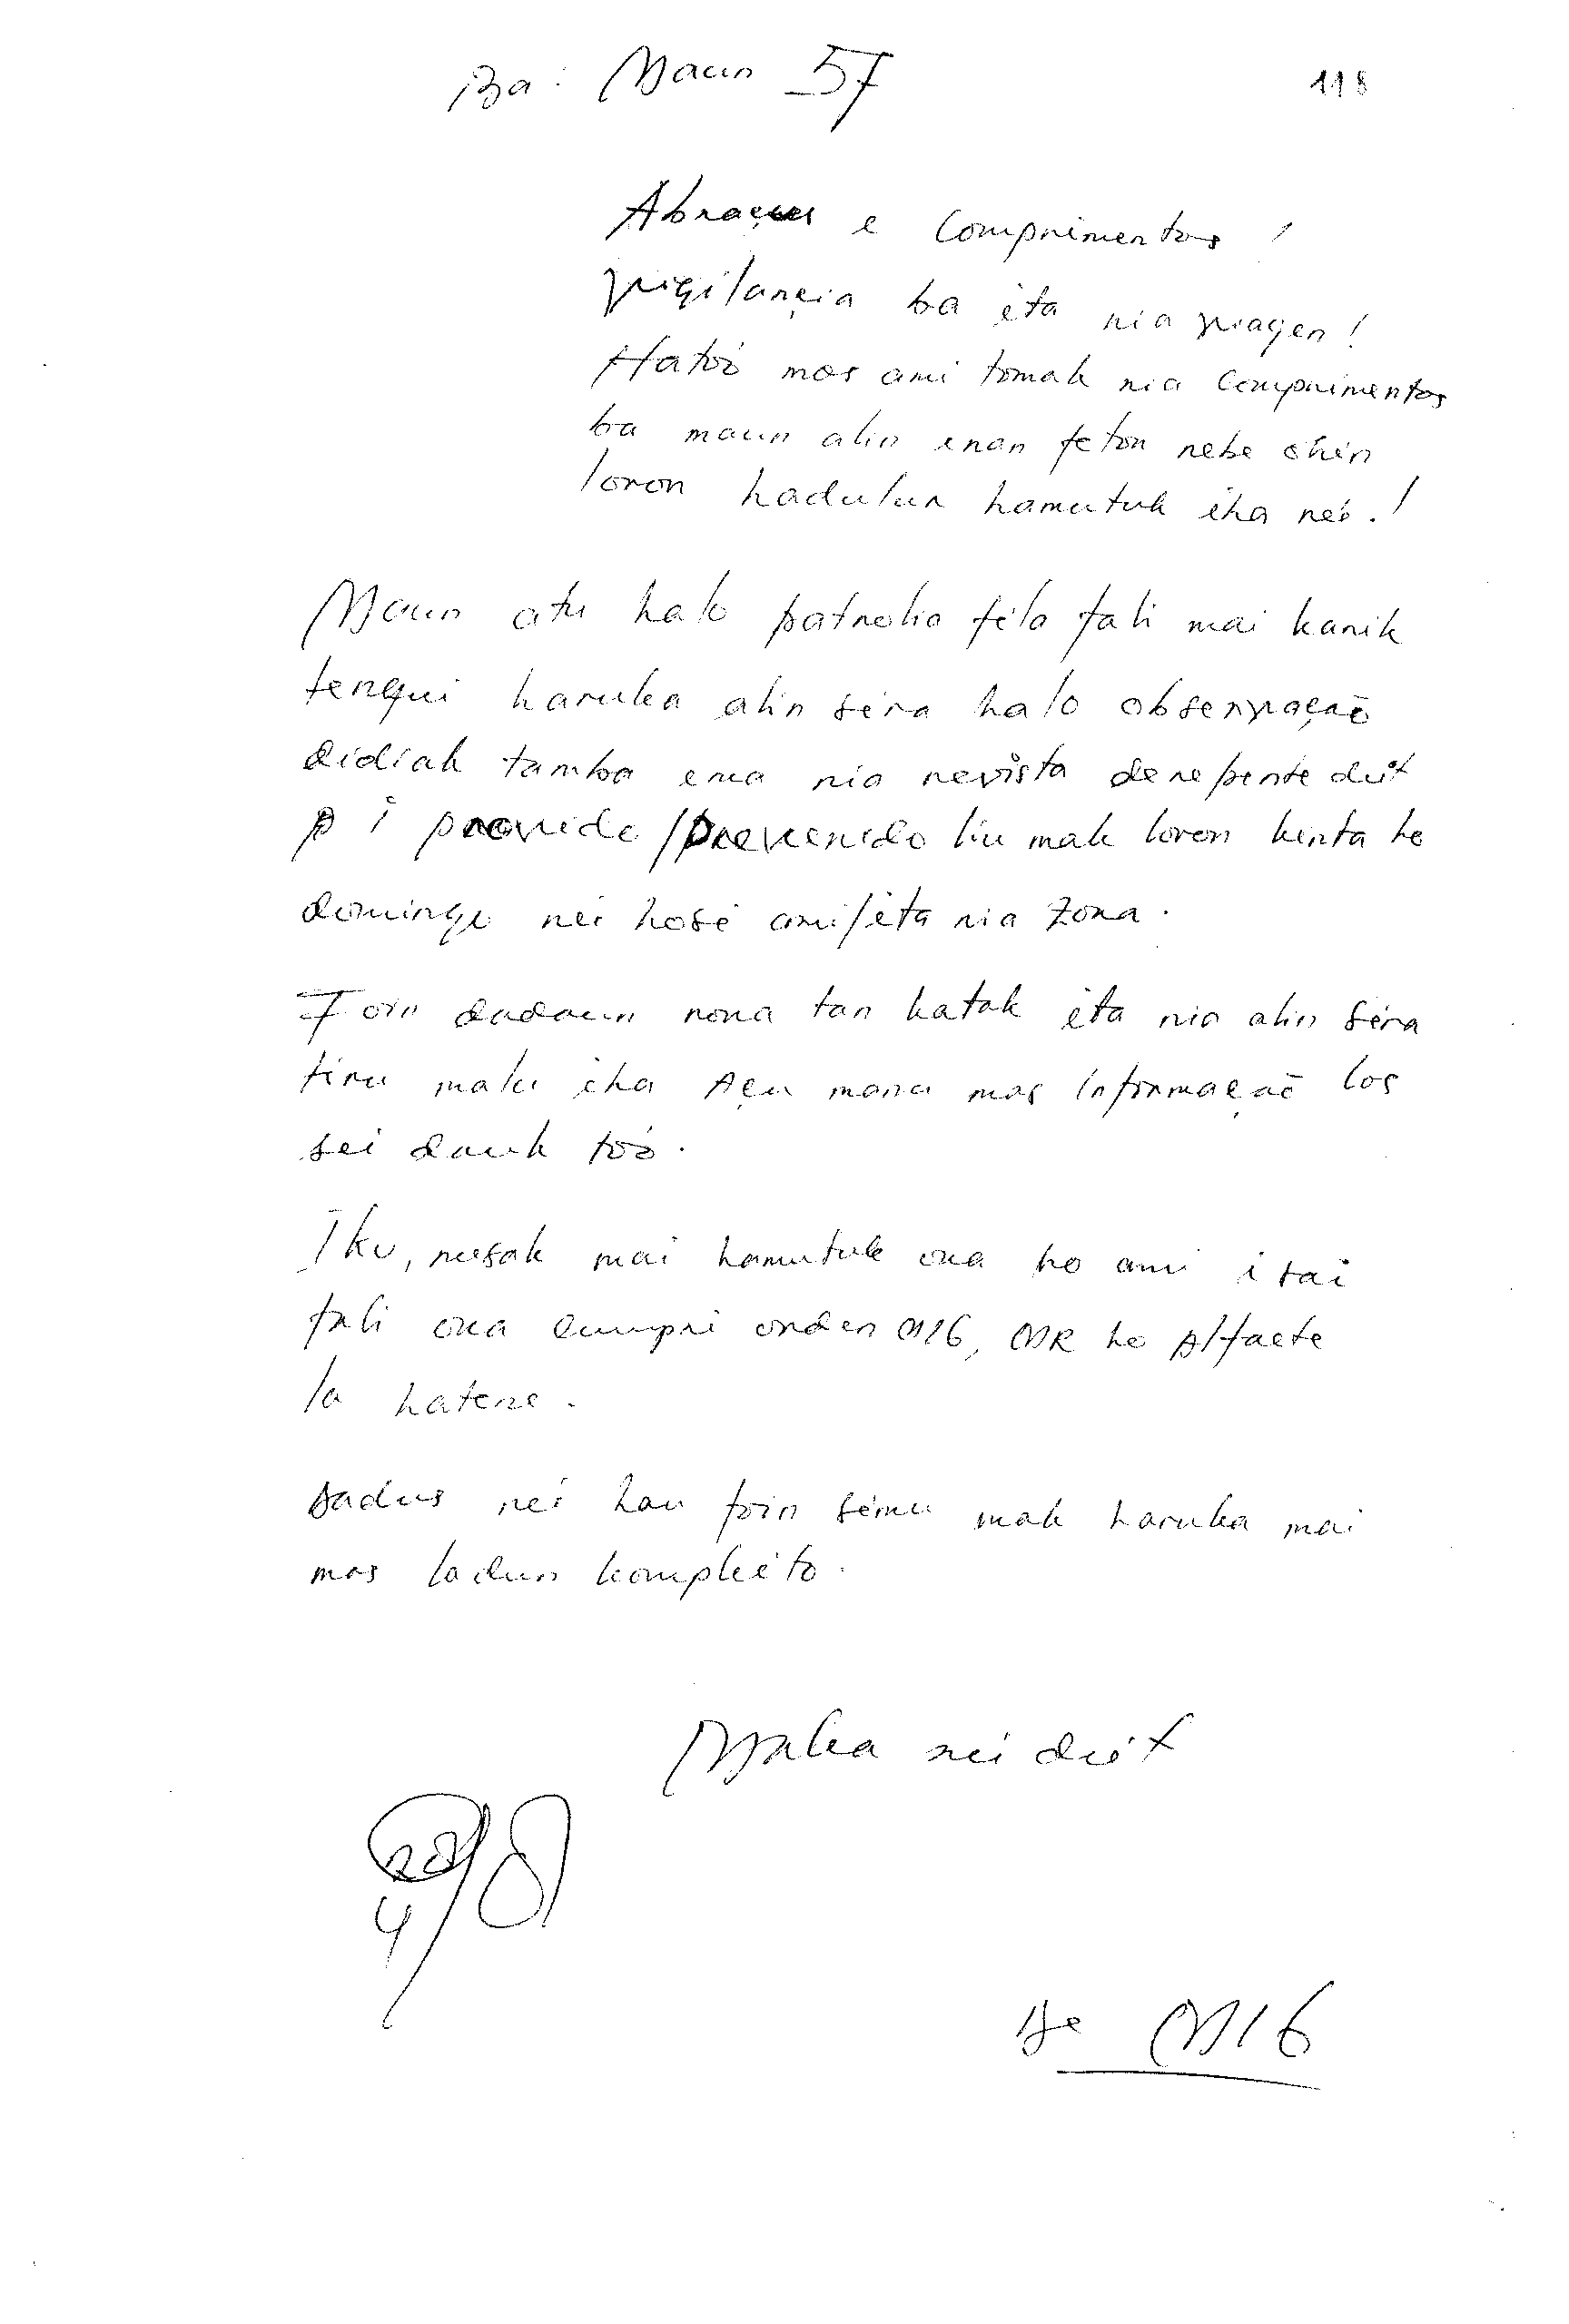 Ba: Maun 57
118
Abraços e Comprimentos!
Vigilançia ba ita nia viagen!
Hatoó mos ami tomak nia Comprimentos
ba maun alin inan feton nebe ohin
loron hadulur hamutuk iha neé.!
Maun atu halo patrolia fila fali mai karik
tenqui haruka alin séra halo observaçaõ
didiak tamba ema nia revista derepente dút
i provido/prevenido liu mak loron kinta ho
domingo neé hosé ami/ita nia zona.
Foin dadaun rona tan katak ita nia alin séra
tiru malu iha Açu manu mas informaçaõ los
sei dauk toó.
Iku, nusak mai hamutuk ona ho ami i sai
fali ona cumpri orden M16, MR ho Alfaete
la hatene.
Dadus neé hau foin simu mak haruka mai
mos ladun kompleéto.
Maka neé duút
28/8
4
De M16